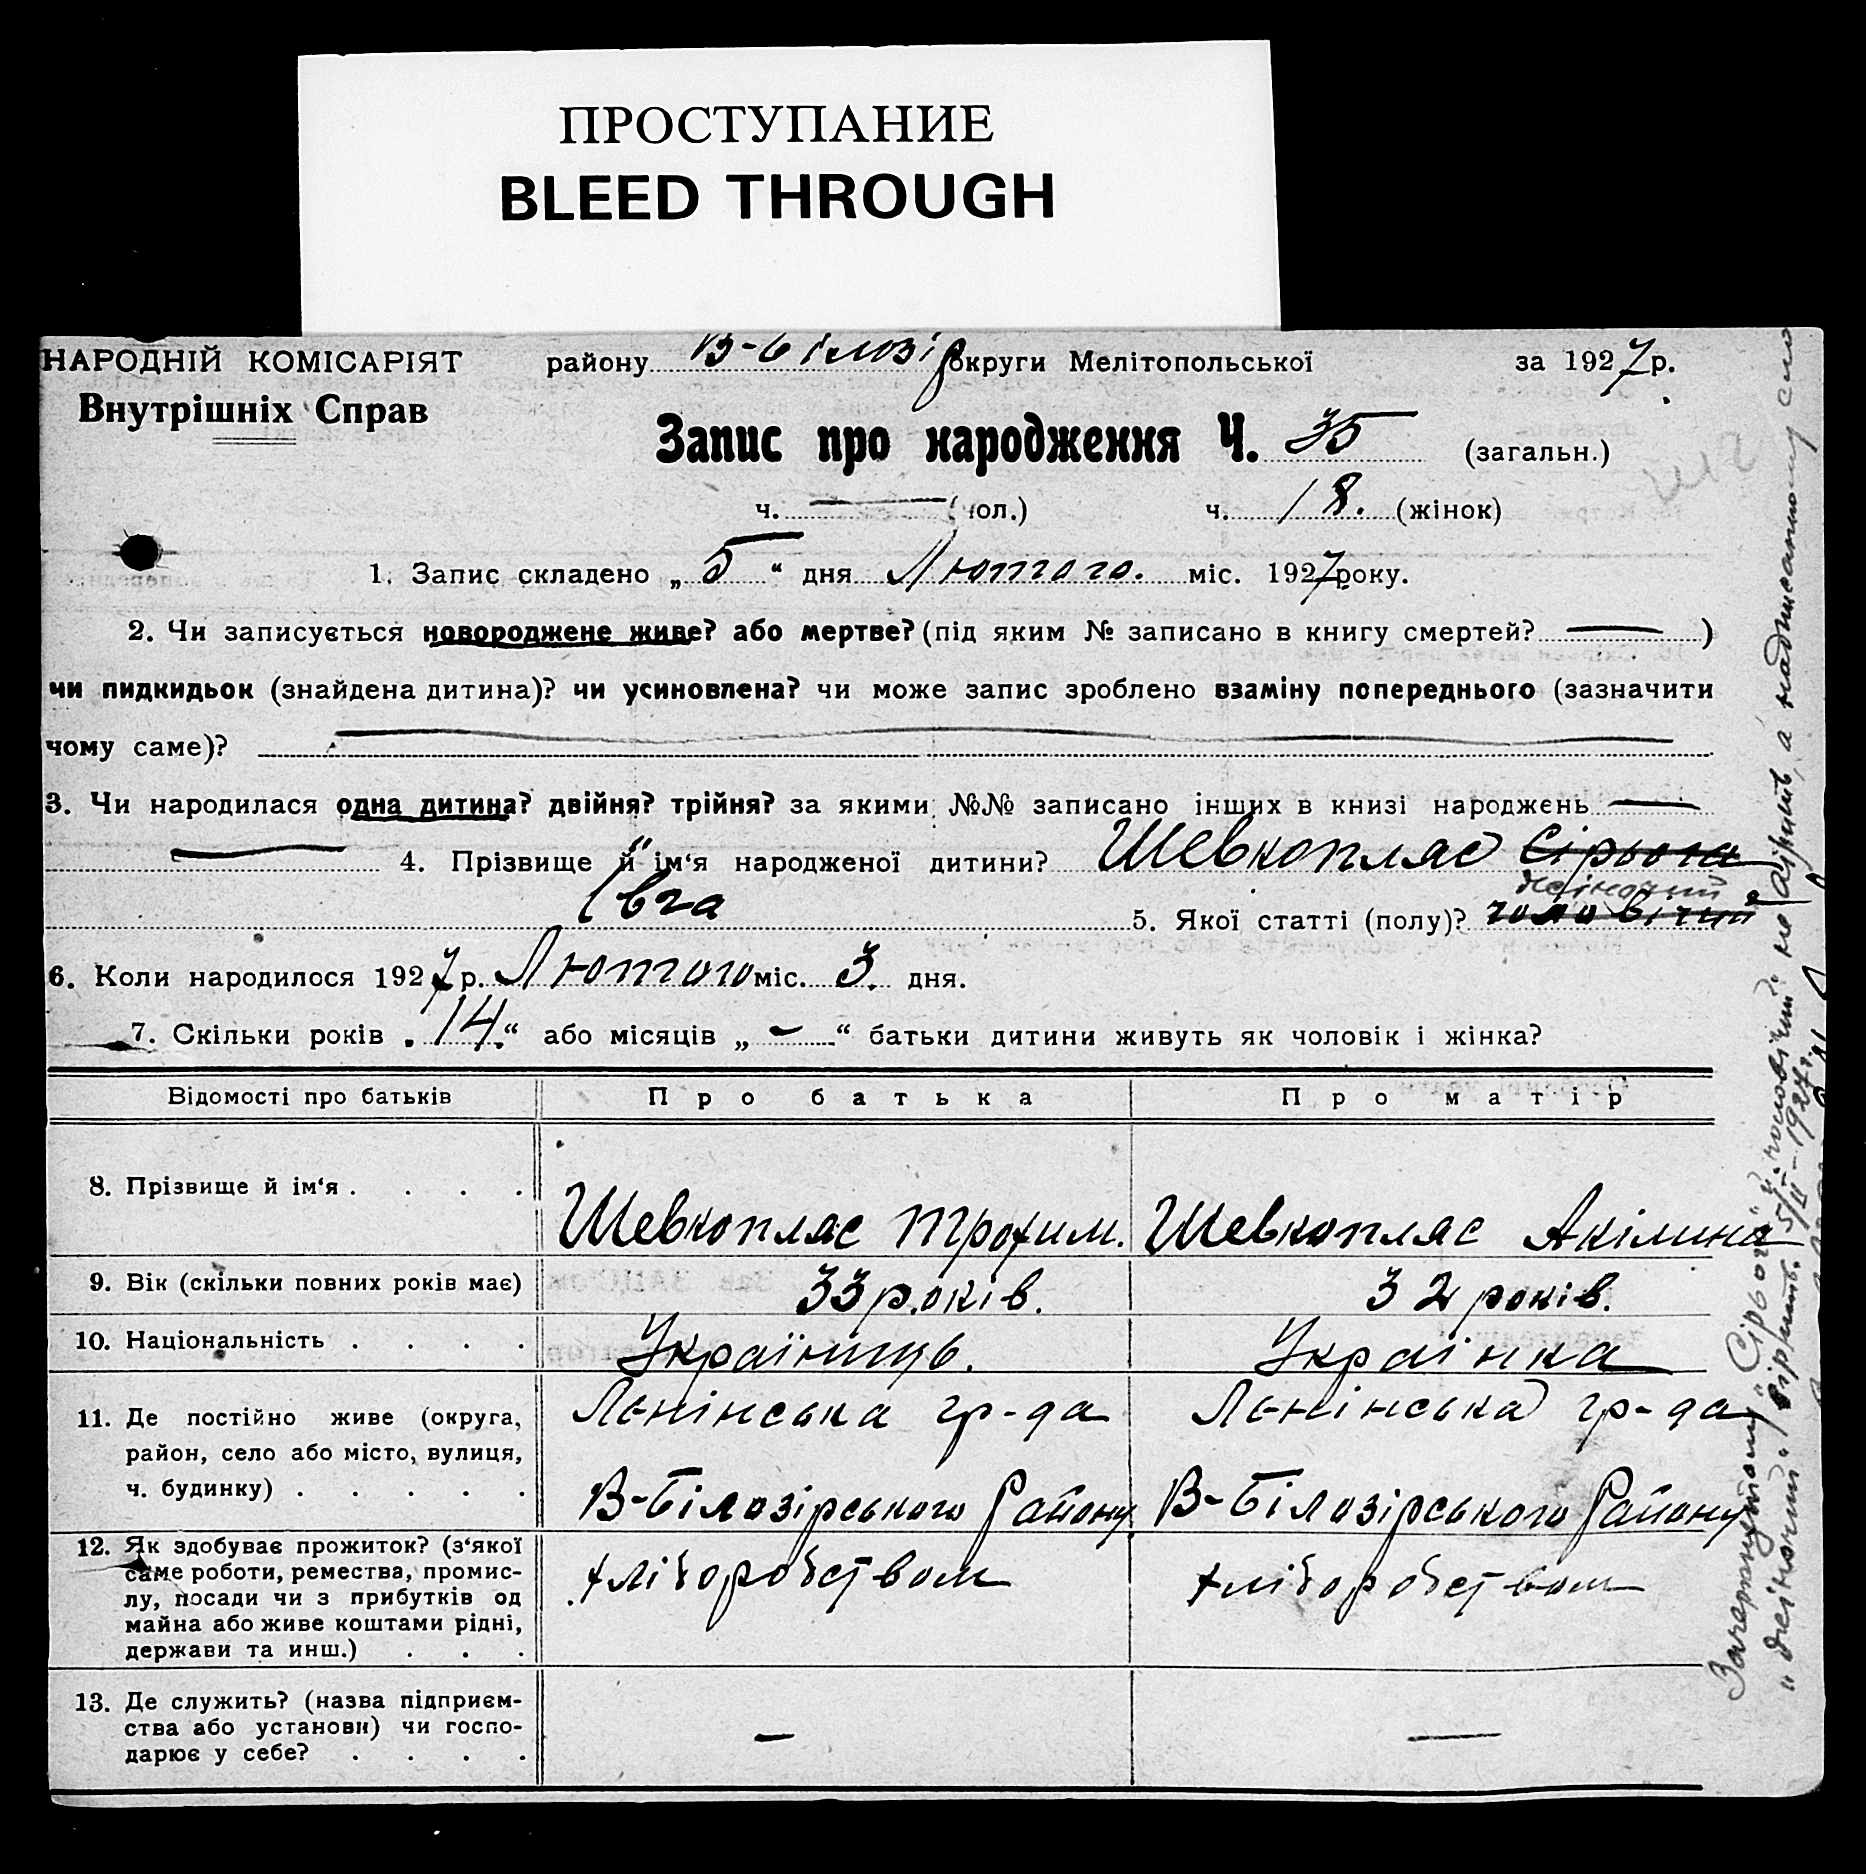 ПРОСТУПАНИЕ
BLEED THROUGH
НАРОДНІЙ КОМІСАРІЯТ району В-Білозір округи Мелітопольської за 1927 р.
Внутрішніх Справ
Запис про народження Ч. 35 (загальн.)
ч. — ол.) ч. 18. (жінок)
1. Запис складено „ 5 “ дня Лютого. міс. 1927 року.
2. Чи записується новороджене живе? або мертве? (під яким № записано в книгу смертей? — )
чи пидкидьок (знайдена дитина)? чи усиновлена? чи може запис зроблено взаміну попереднього (зазначити
чому саме)? —
3. Чи народилася одна дитина? двійня? трійня? за якими №№ записано інших в книзі народжень —
— 4. Прізвище й ім‘я народженої дитини? Шевкопляс Сірьога
Івга 5. Якої статті (полу)? жіночий чоловічий
6. Коли народилося 1927 р. Лютого міс. 3. дня.
7. Скільки років „ 14 “ або місяців „ - “ батьки дитини живуть як чоловік і жінка?
Відомості про батьків Про батька Про матір
8. Прізвище й ім‘я . . . . Шевкопляс Трохим. Шевкопляс Акілина
9. Вік (скільки повних років має) 33 років. 32 років.
10. Національність . . . . Українець. Українка
11. Де постійно живе (округа, Ленінська гр-да Ленінська гр-да
район, село або місто, вулиця,
ч. будинку) . . . . . В-Білозірського Району В-Білозірського Району
12. Як здобуває прожиток? (з‘якої
саме роботи, ремества, промис- хліборобством хліборобством
лу, посади чи з прибутків од
майна або живе коштами рідні,
держави та инш.) . . .
13. Де служить? (назва підприєм-
ства або установи) чи госпо- — —
дарює у себе? . . . .
Зачеркнутому „Сірьога“ й „чоловічий“ не вірить, а надписанному
„жіночий“ вірить. 5/II-1927 р.